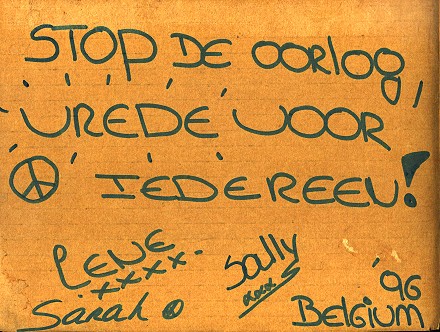 STOP DE OORLOG,
VREDE VOOR
IEDEREEN!
LENE
xxxx.
Sally
xxxx
Sarah
'96
BELGIUM